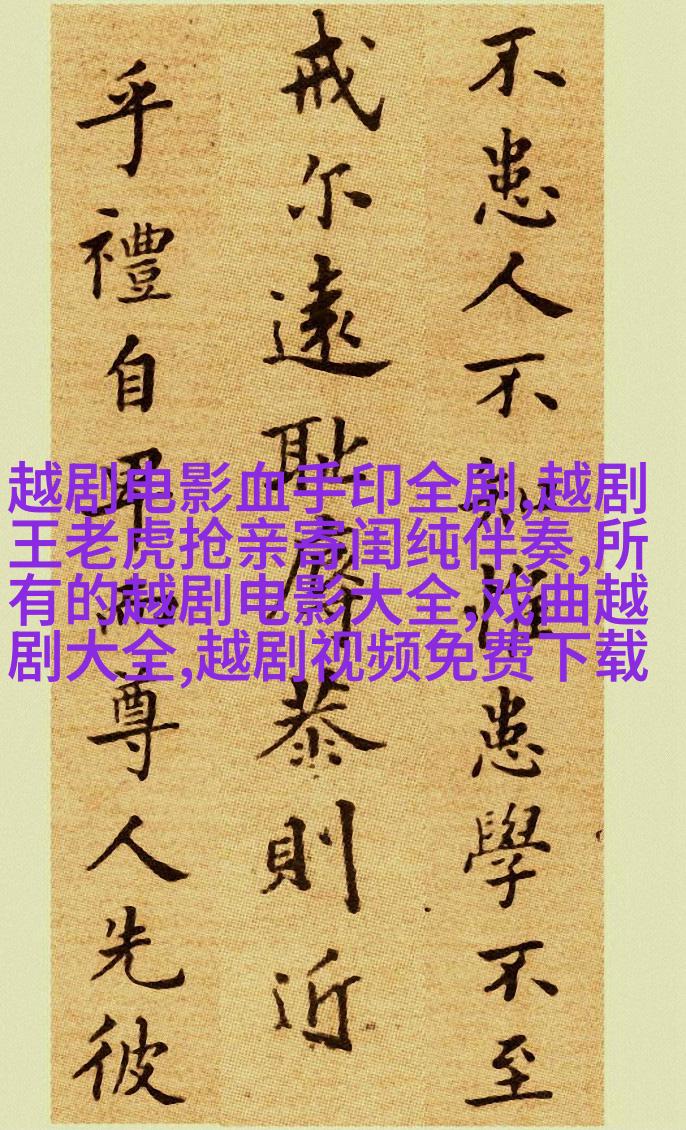 不患人不知惟患學不至
戒尔遠耻辱恭則近
乎禮自卑而尊人先彼
越剧电影血手印全剧,越剧
王老虎抢亲寄闺纯伴奏,所
有的越剧电影大全,戏曲越
剧大全,越剧视频免费下载